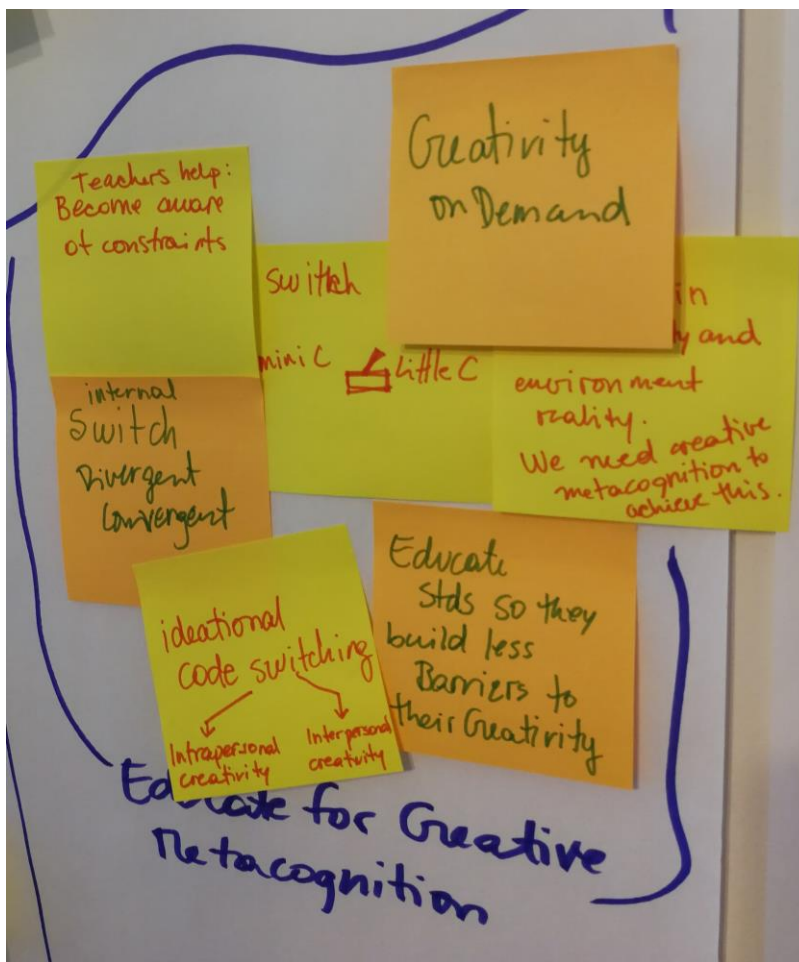 Teachers help:
Become aware
of constraints
Creativity
on Demand
switch
mini C little C
in
and
environment
reality.
We need creative
metacognition to
achieve this.
internal
Switch
Divergent
Convergent
ideational
code switching
Intrapersonal
creativity
Interpersonal
creativity
Educate
Stds so they
build less
Barriers to
their Creativity
Educate for Creative
Metacognition